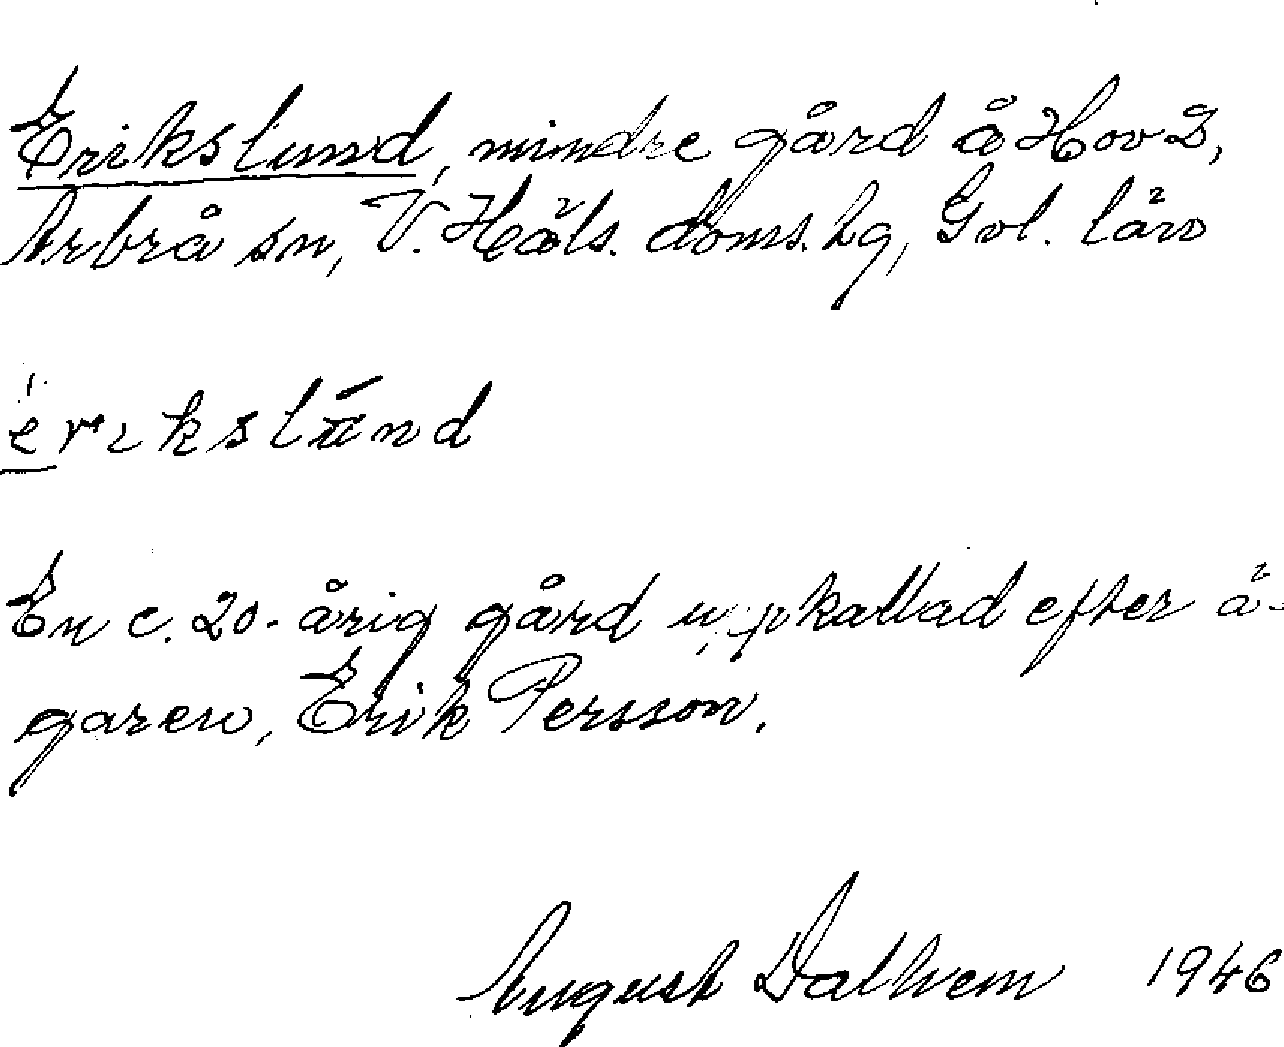 Erikslund, mindre gård å Hov 2,
Arbrå sn, V. Häls. doms. hg, Gvl. län
érikslu̅nd
En c. 20-årig gård uppkallad efter ä-
garen, Erik Persson.
August Dalhem 1946